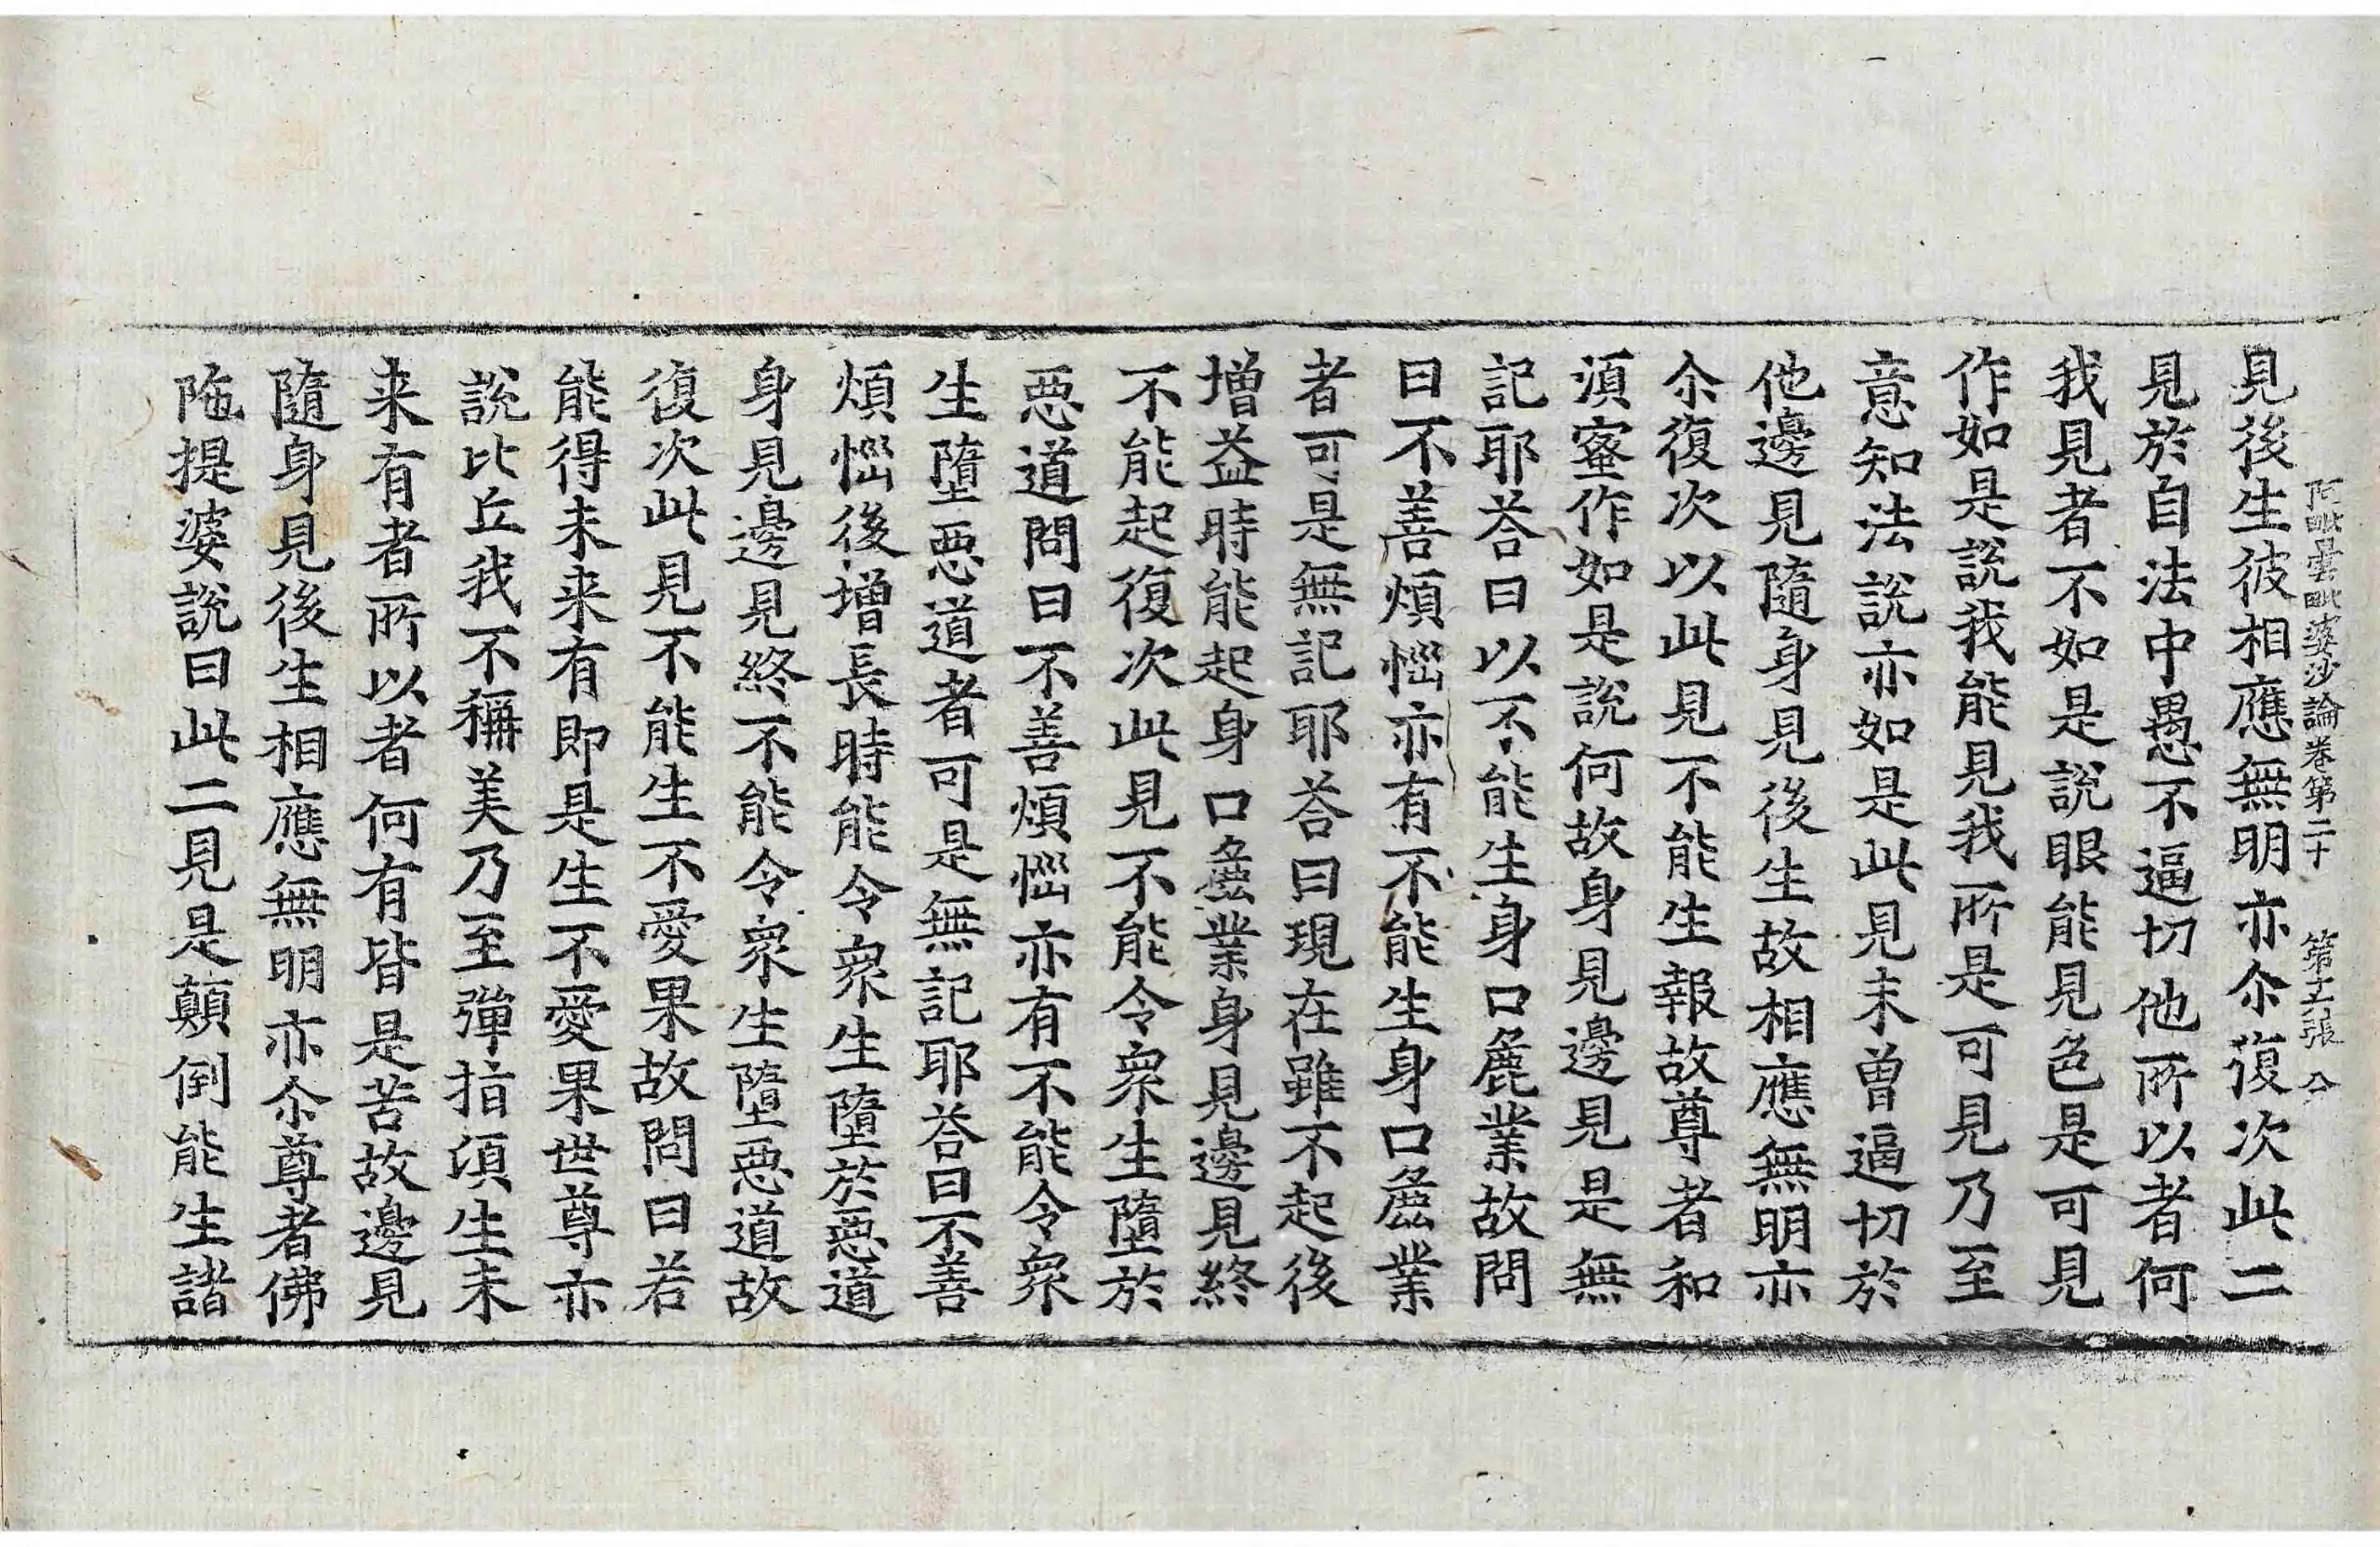 阿毗曇毗婆沙論卷第二十　第十六張　公
見後生彼相應無明亦尒復次此二
見於自法中愚不逼切他所以者何
我見者不如是說眼能見色是可見
作如是說我能見我所是可見乃至
意知法說亦如是此見未曾逼切於
他邊見隨身見後生故相應無明亦
尒復次以此見不能生報故尊者和
湏蜜作如是說何故身見邊見是無
記耶荅曰以不能生身口麁業故問
曰不善煩惱亦有不能生身口麁業
者可是無記耶荅曰現在雖不起後
增益時能起身口麁業身見邊見終
不能起復次此見不能令衆生墮於
惡道問曰不善煩惱亦有不能令衆
生墮惡道者可是無記耶荅曰不善
煩惱後增長時能令衆生墮於惡道
身見邊見終不能令衆生墮惡道故
復次此見不能生不愛果故問曰若
能得未来有即是生不愛果世尊亦
說比丘我不稱美乃至彈指頃生未
来有者所以者何有皆是苦故邊見
隨身見後生相應無明亦尒尊者佛
陁提婆說曰此二見是顛倒能生諸